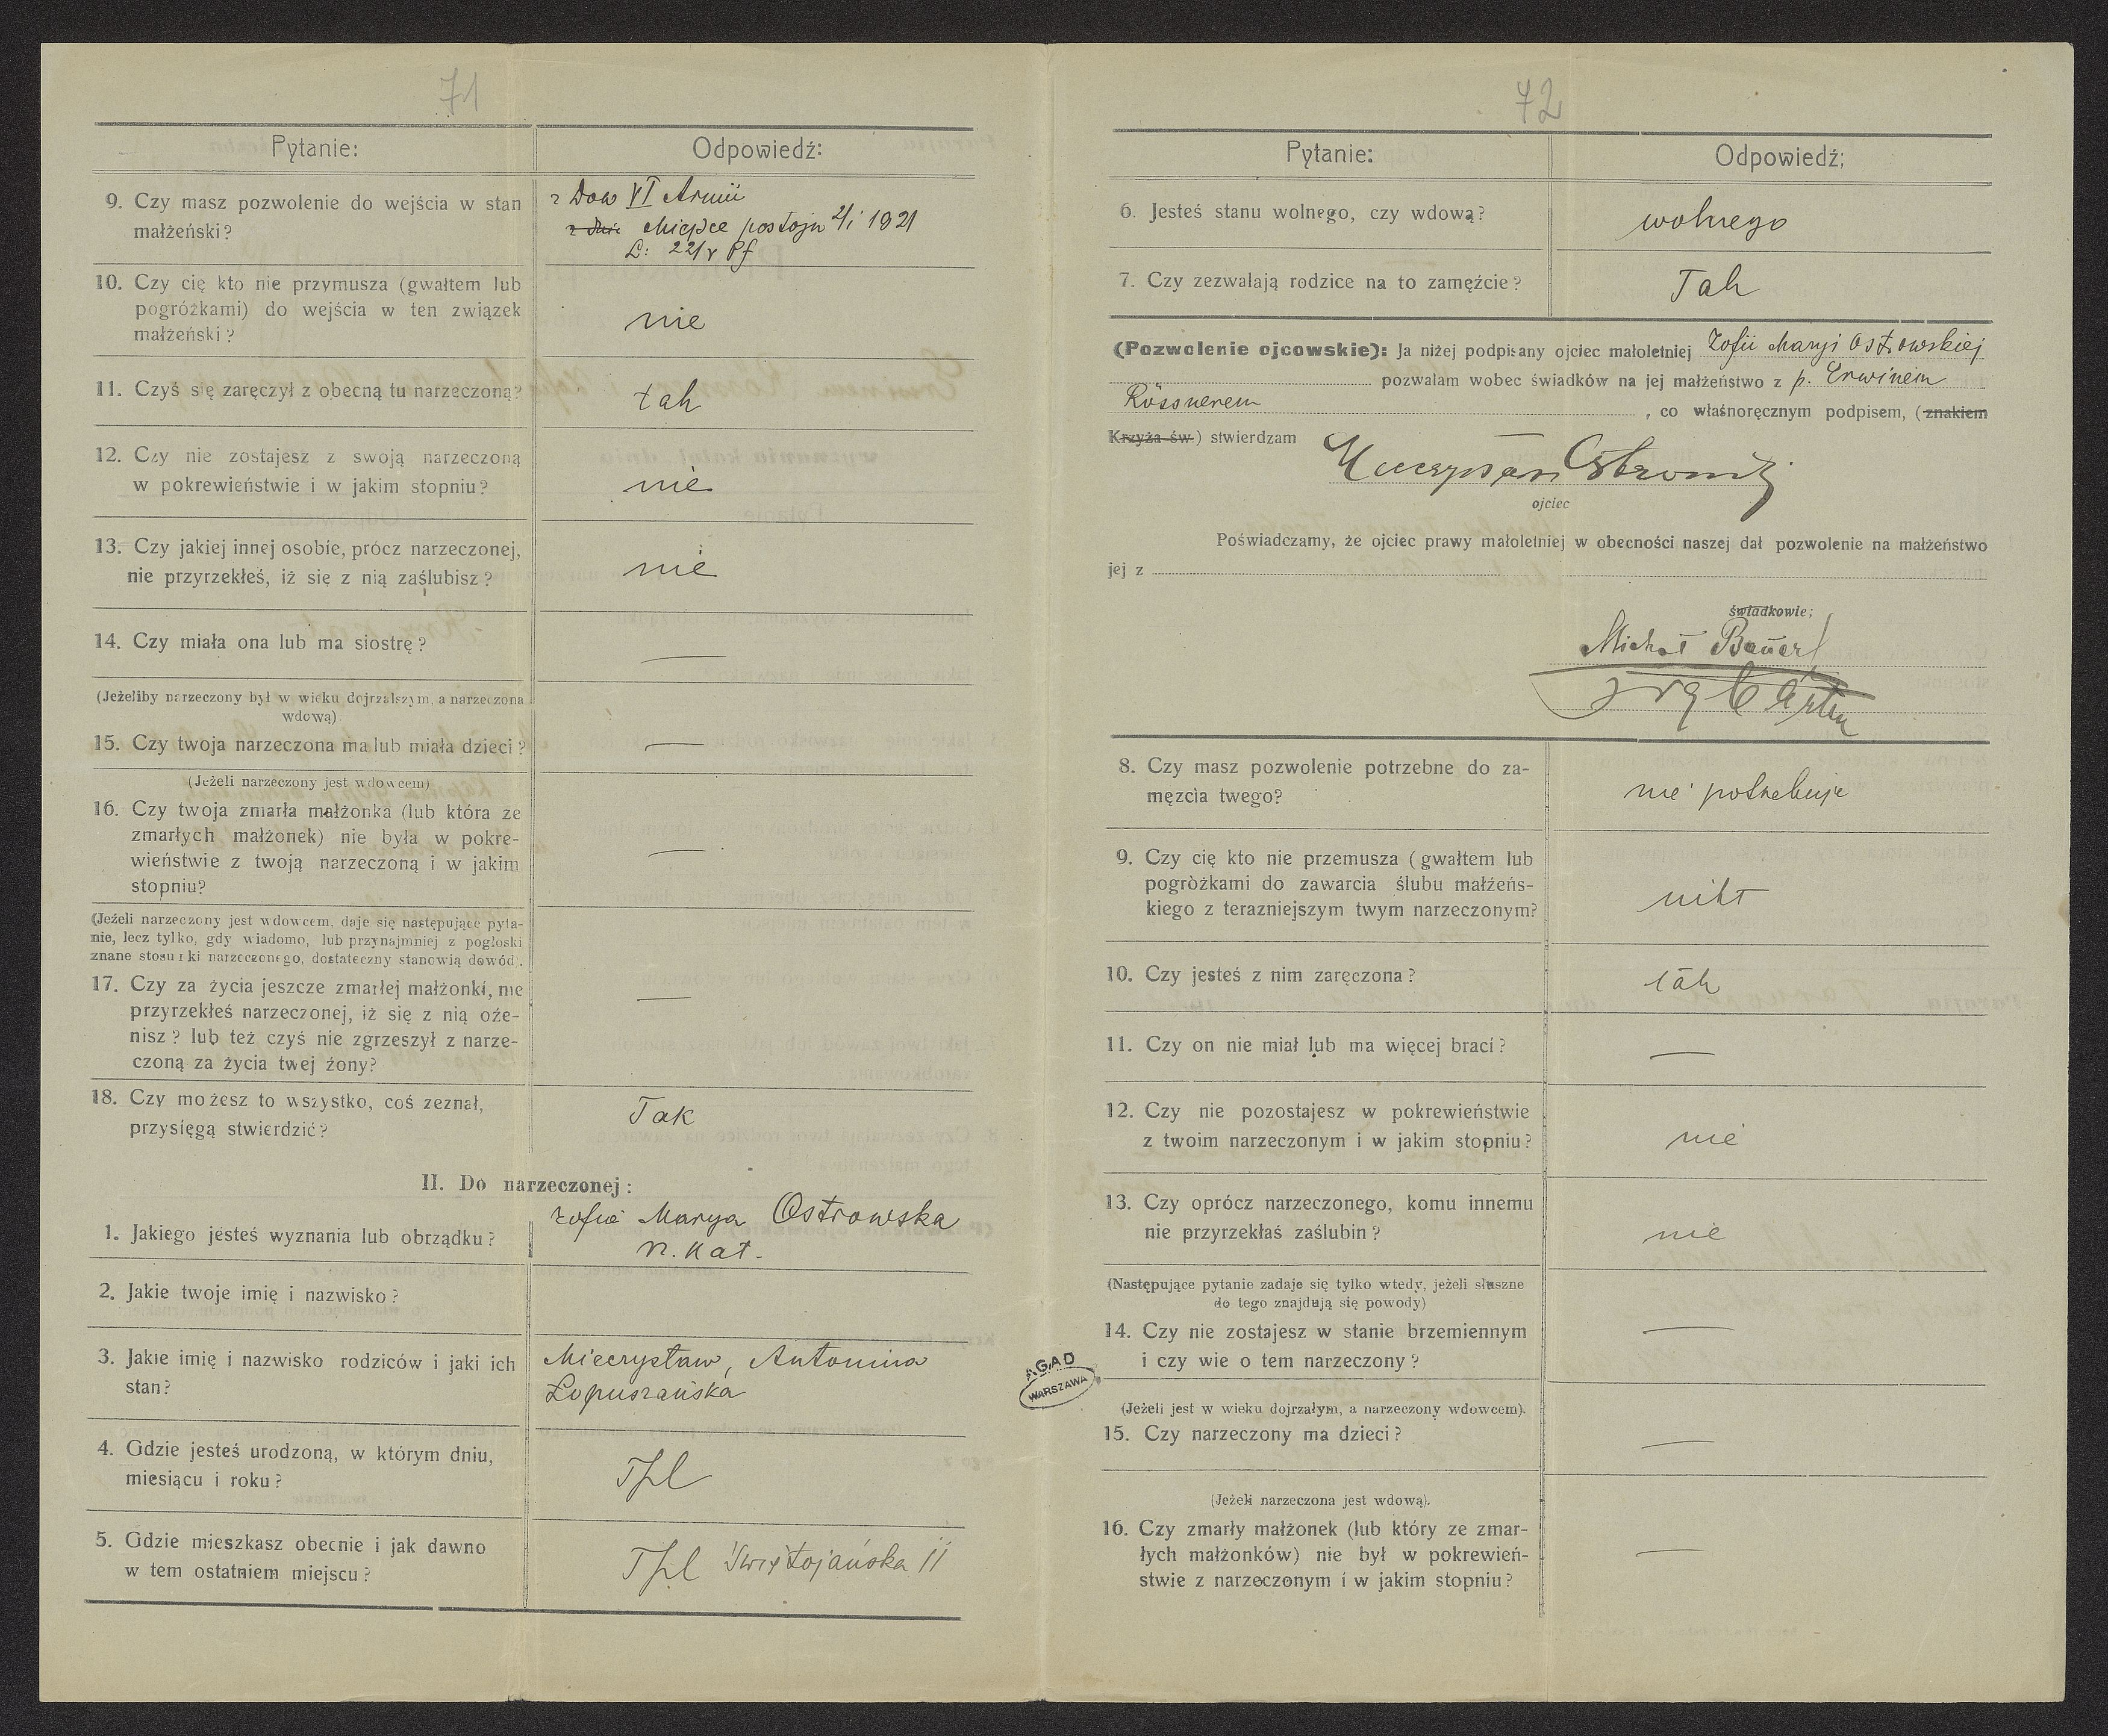 71
Pytanie:
Odpowiedź:
9. Czy masz pozwolenie do wejścia w stan
małżeński?
z Dow VI Armii
Miejsce postoju 2/I 1921
L: 221
10. Czy cię kto nie przymusza (gwałtem lub
pogróżkami) do wejścia w ten związek
małżeński?
nie
11. Czyś się zaręczył z obecną tu narzeczoną?
tak
12. Czy nie zostajesz z swoją narzeczoną
w pokrewieństwie i w jakim stopniu?
nie
13. Czy jakiej innej osobie, prócz narzeczonej,
nie przyrzekłeś, iż się z nią zaślubisz?
nie
14. Czy miała ona lub ma siostrę?
—
(Jeżeliby narzeczony był w wieku dojrzalszym, a narzeczona
wdową)
15. Czy twoja narzeczona ma lub miała dzieci?
—
(Jeżeli narzeczony jest wdowcem)
16. Czy twoja zmarła małżonka (lub która ze
zmarłych małżonek) nie była w pokre-
wieństwie z twoją narzeczoną i w jakim
stopniu?
—
(Jeżeli narzeczony jest wdowcem, daje się następujące pyta-
nie, lecz tylko, gdy wiadomo, lub przynajmniej z pogłoski
znane stosunki narzeczonego, dostateczny stanowią dowód).
17. Czy za życia jeszcze zmarłej małżonki, nie
przyrzekłeś narzeczonej, iż się z nią oże-
nisz? lub też czyś nie zgrzeszył z narze-
czoną za życia twej żony?
—
18. Czy możesz to wszystko, coś zeznał,
przysięgą stwierdzić?
Tak
II. Do narzeczonej:
1. Jakiego jesteś wyznania lub obrządku?
Zofia Marya Ostrowska
r. kat.
2. Jakie twoje imię i nazwisko?
3. Jakie imię i nazwisko rodziców i jaki ich
stan?
Mieczysław, Antonina
Łopuszańska
4. Gdzie jesteś urodzoną, w którym dniu,
miesiącu i roku?
Tpl
5. Gdzie mieszkasz obecnie i jak dawno
w tem ostatniem miejscu?
Tpl Świętojańska 11
72
Pytanie:
Odpowiedź;
6. Jesteś stanu wolnego, czy wdową?
wolnego
7. Czy zezwalają rodzice na to zamęźcie?
Tak
(Pozwolenie ojcowskie): Ja niżej podpisany ojciec małoletniej Zofii Maryi Ostrowskiej
pozwalam wobec świadków na jej małżeństwo z p. Erwinem
Rössnerem , co właśnoręcznym podpisem, (znakiem
Krzyża św.) stwierdzam
Mieczysław Ostrowski
ojciec
Poświadczamy, że ojciec prawy małoletniej w obecności naszej dał pozwolenie na małżeństwo
jej z
świadkowie;
Michał Bauer
8. Czy masz pozwolenie potrzebne do za-
męzcia twego?
nie potrzebuje
9. Czy cię kto nie przemusza (gwałtem lub
pogròżkami do zawarcia ślubu małżeńs-
kiego z terazniejszym twym narzeczonym?
nikt
10. Czy jesteś z nim zaręczona?
tak
11. Czy on nie miał lub ma więcej braci?
—
12. Czy nie pozostajesz w pokrewieństwie
z twoim narzeczonym i w jakim stopniu?
nie
13. Czy oprócz narzeczonego, komu innemu
nie przyrzekłaś zaślubin?
nie
(Następujące pytanie zadaje się tylko wtedy, jeżeli słuszne
do tego znajdują się powody)
14. Czy nie zostajesz w stanie brzemiennym
i czy wie o tem narzeczony?
—
(Jeżeli jest w wieku dojrzałym, a narzeczony wdowcem).
15. Czy narzeczony ma dzieci?
—
(Jeżeli narzeczona jest wdową).
16. Czy zmarły małżonek (lub który ze zmar-
łych małżonków) nie był w pokrewień-
stwie z narzeczonym i w jakim stopniu?
—
AGAD
WARSZAWA